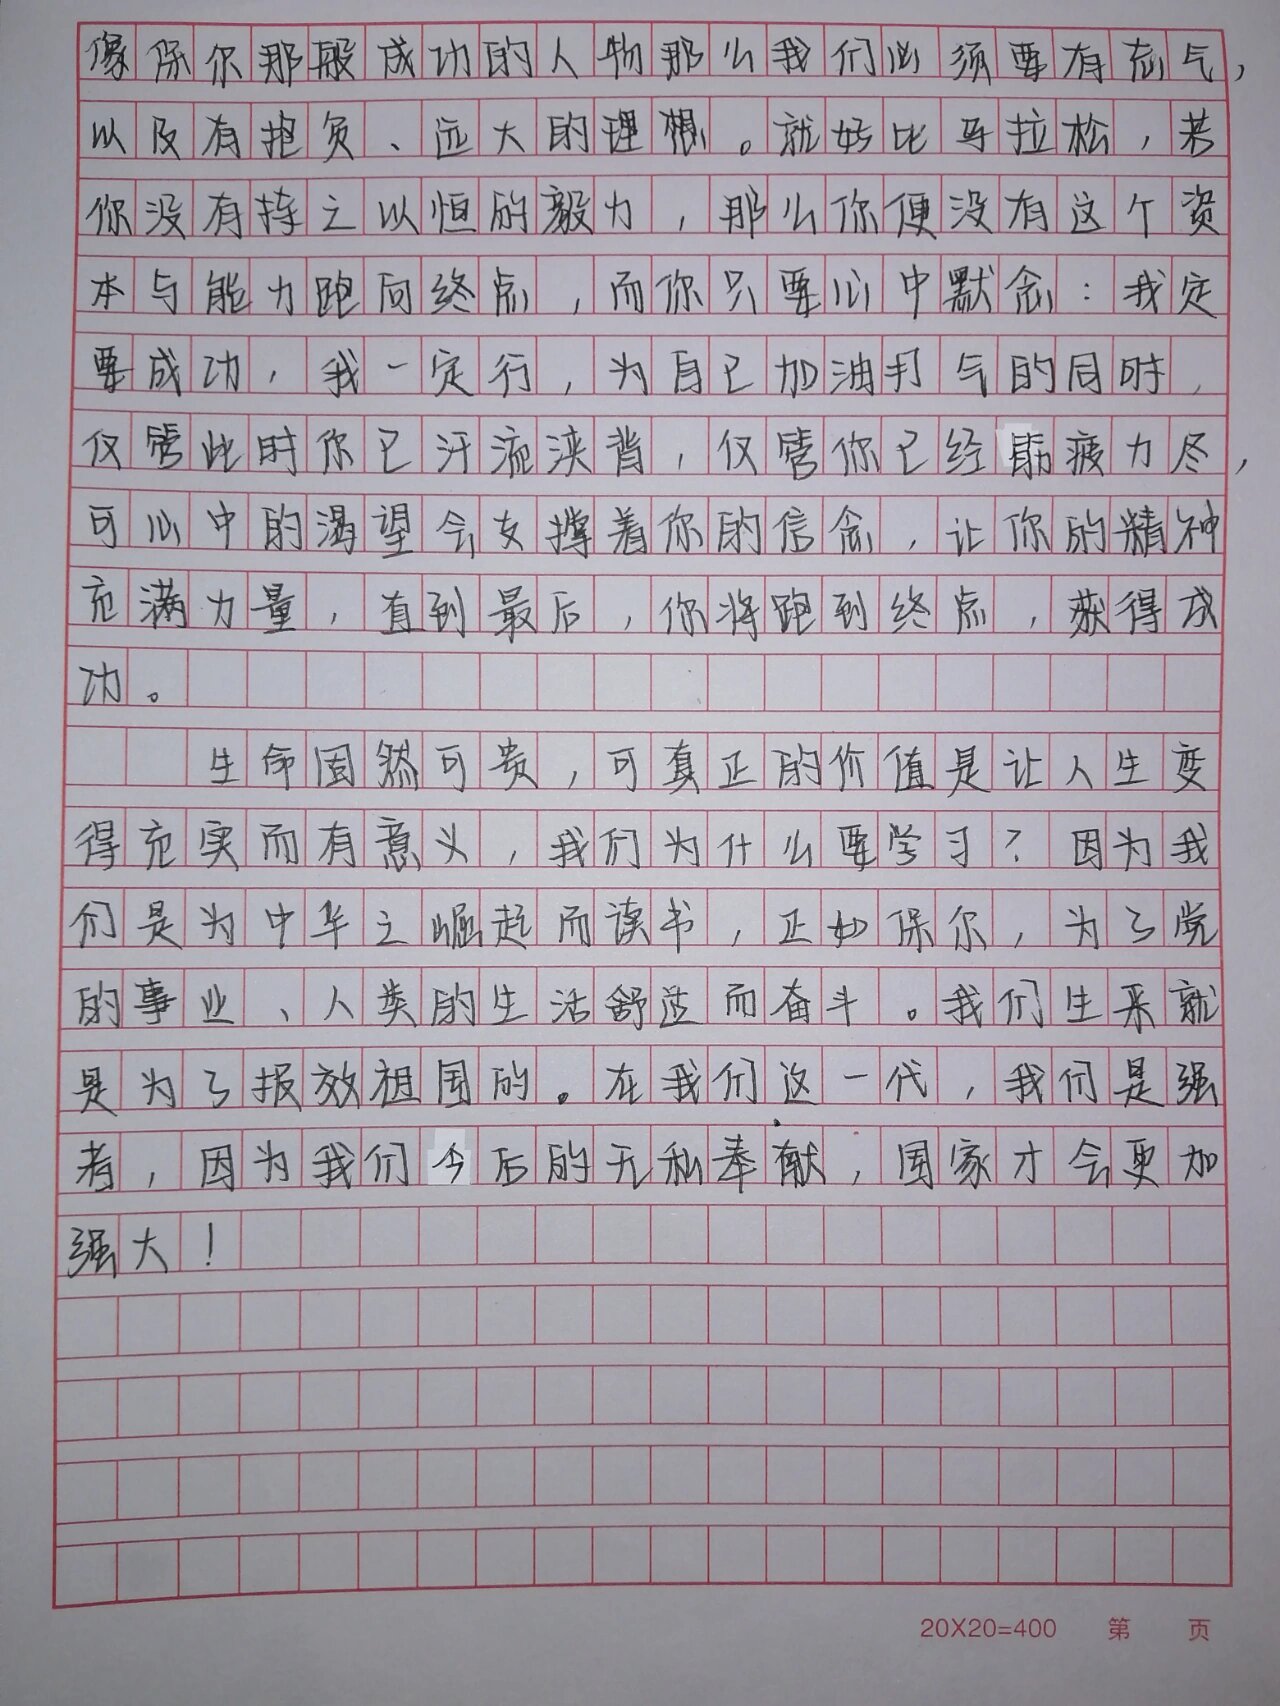 像保尔那般成功的人物那么我们必须要有志气，
以及有抱负、远大的理想。就好比马拉松，若
你没有持之以恒的毅力，那么你便没有这个资
本与能力跑向终点，而你只要心中默念：我定
要成功，我一定行，为自己加油打气的同时，
仅管此时你已汗流浃背，仅管你已经筋疲力尽，
可心中的渴望会支撑着你的信念，让你的精神
充满力量，直到最后，你将跑到终点，获得成
功。
生命固然可贵，可真正的价值是让人生变
得充实而有意义，我们为什么要学习？因为我
们是为中华之崛起而读书，正如保尔，为了党
的事业、人类的生活舒适而奋斗。我们生来就
是为了报效祖国的。在我们这一代，我们是强
者，因为我们今后的无私奉献，国家才会更加
强大！
20X20=400 第 页